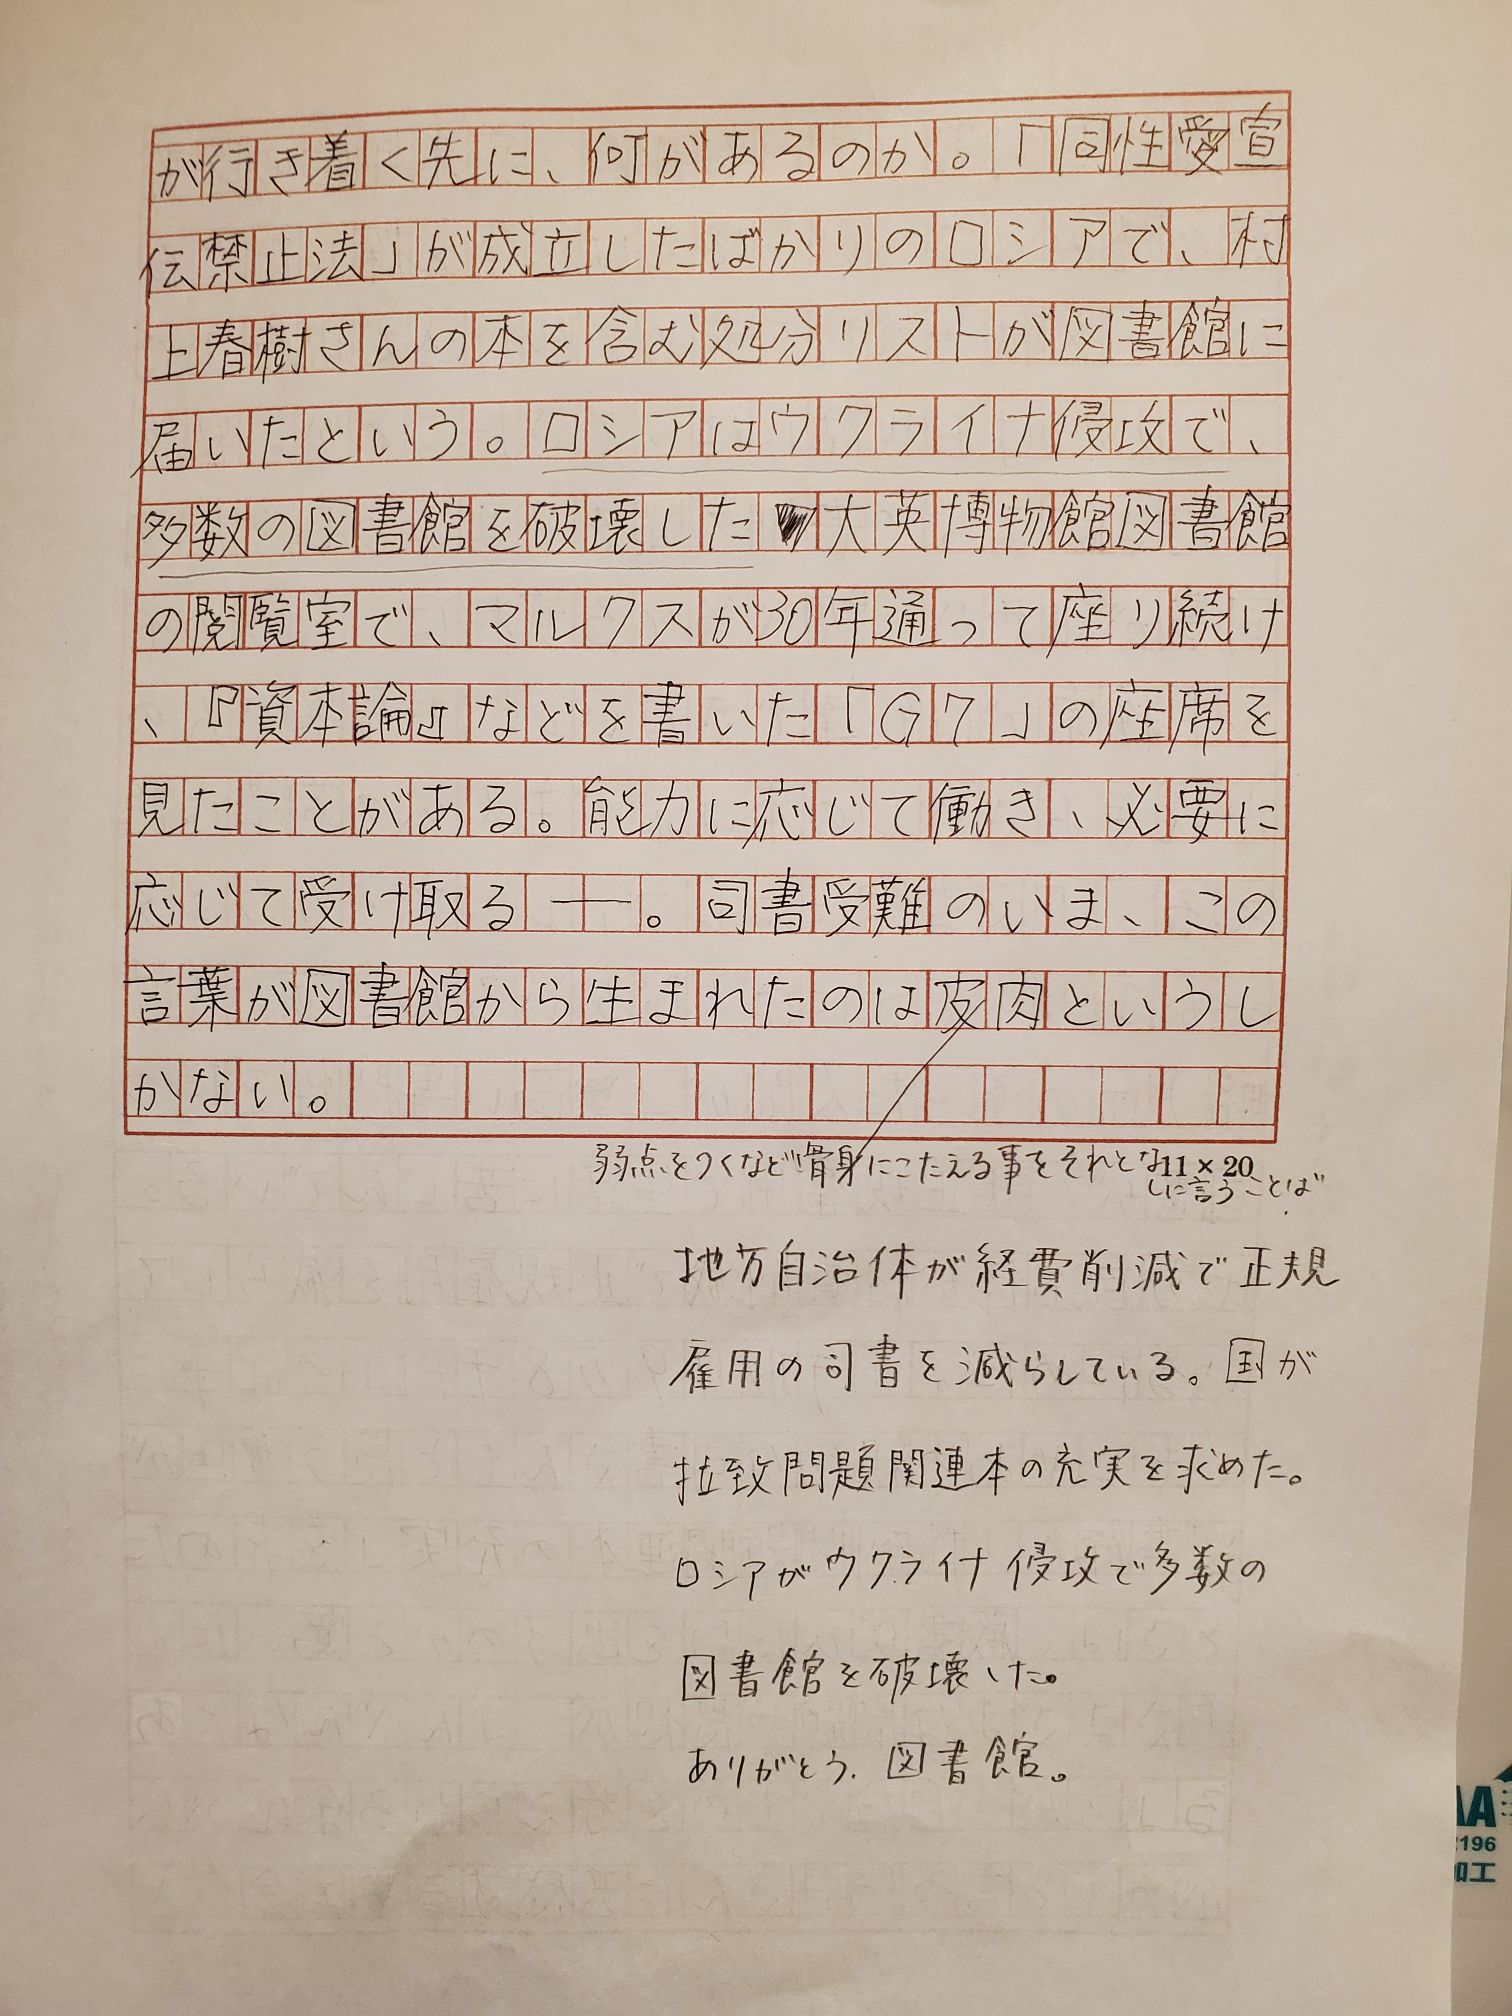 が行き着く先に、何があるのか。「同性愛宣
伝禁止法」が成立したばかりのロシアで、村
上春樹さんの本を含む処分リストが図書館に
届いたという。ロシアはウクライナ侵攻で、
多数の図書館を破壊した 大英博物館図書館
の閲覧室で、マルクスが30年通って座り続け
、『資本論』などを書いた「G7」の座席を
見たことがある。能力に応じて働き、必要に
応じて受け取る―。司書受難のいま、この
言葉が図書館から生まれたのは皮肉というし
かない。
弱点をつくなど骨身にこたえる事をそれとな
しに言うことば
11 × 20
地方自治体が経費削減で正規
雇用の司書を減らしている。国が
拉致問題関連本の充実を求めた。
ロシアがウクライナ侵攻で多数の
図書館を破壊した。
ありがとう.図書館。
AA
2196
加工